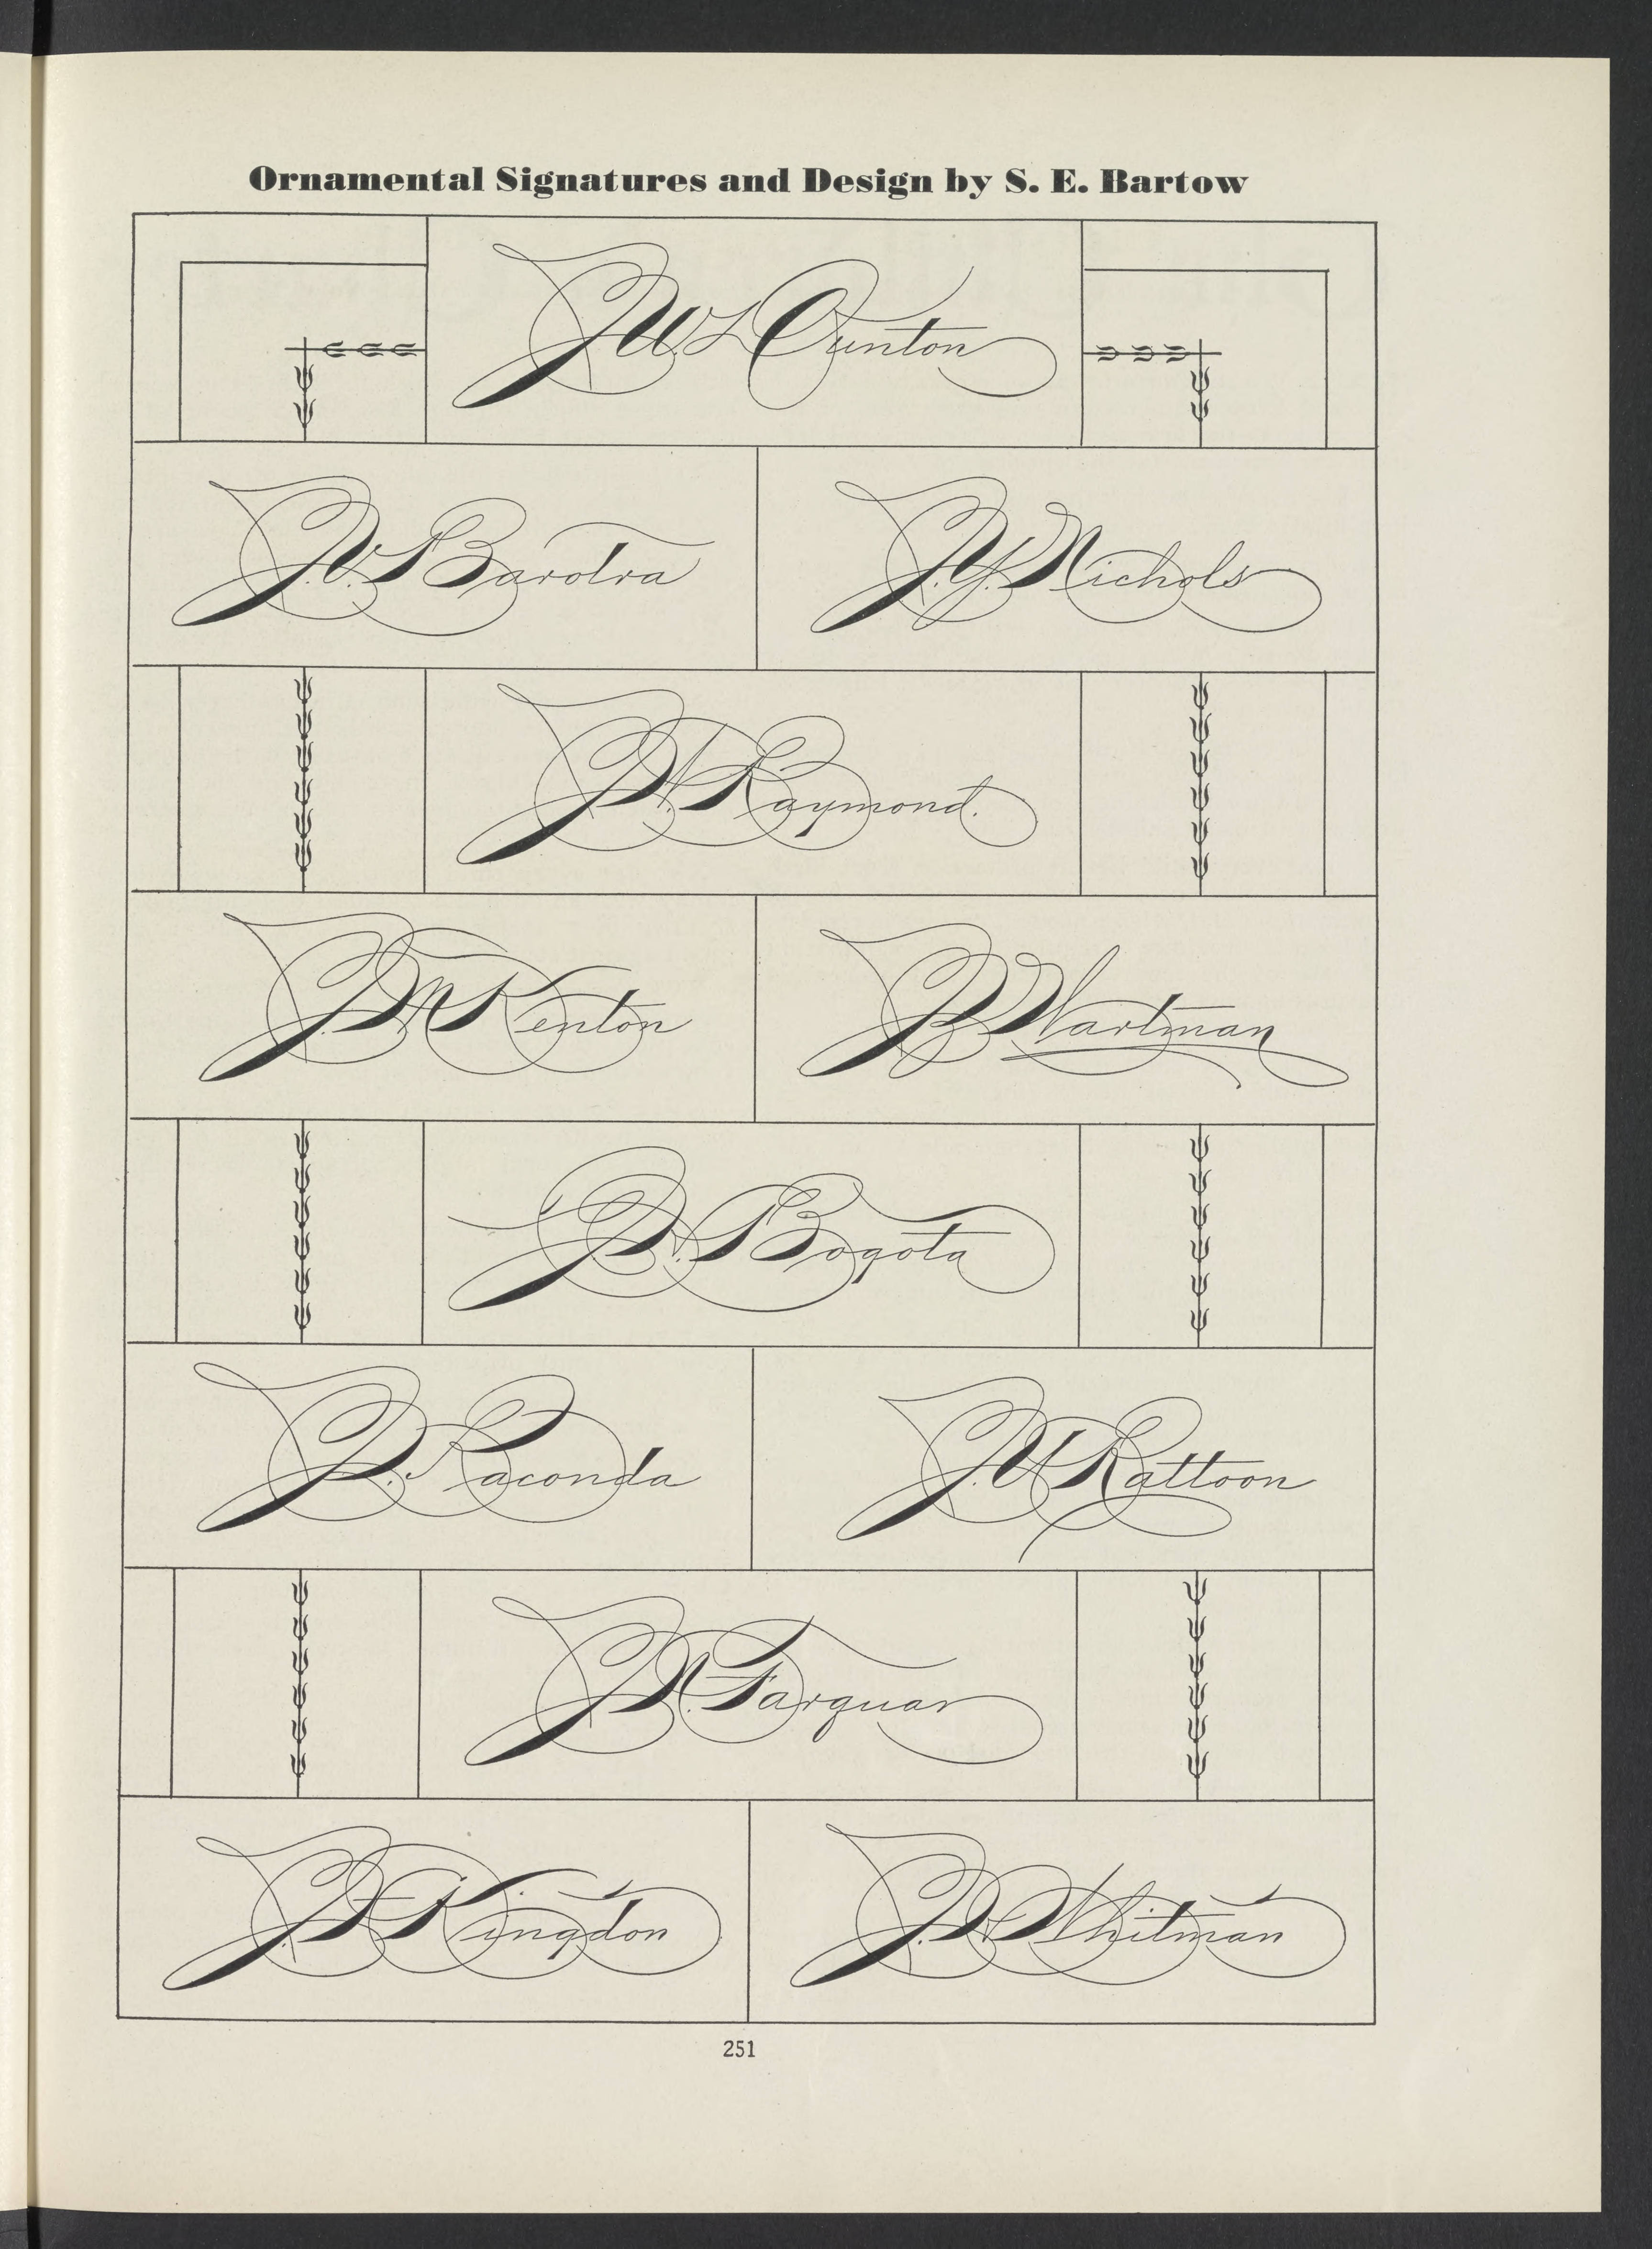 Ornamental Signatures and Design by S. E. Bartow
J. W. L. Ounton
J. V. Barolra
J. Y. Nichols
Raymond.
J. M. Kenton
Wartman
Bogota
Raconda
J. U. Rattoon
Farquar
Kingdon
Whitman
251